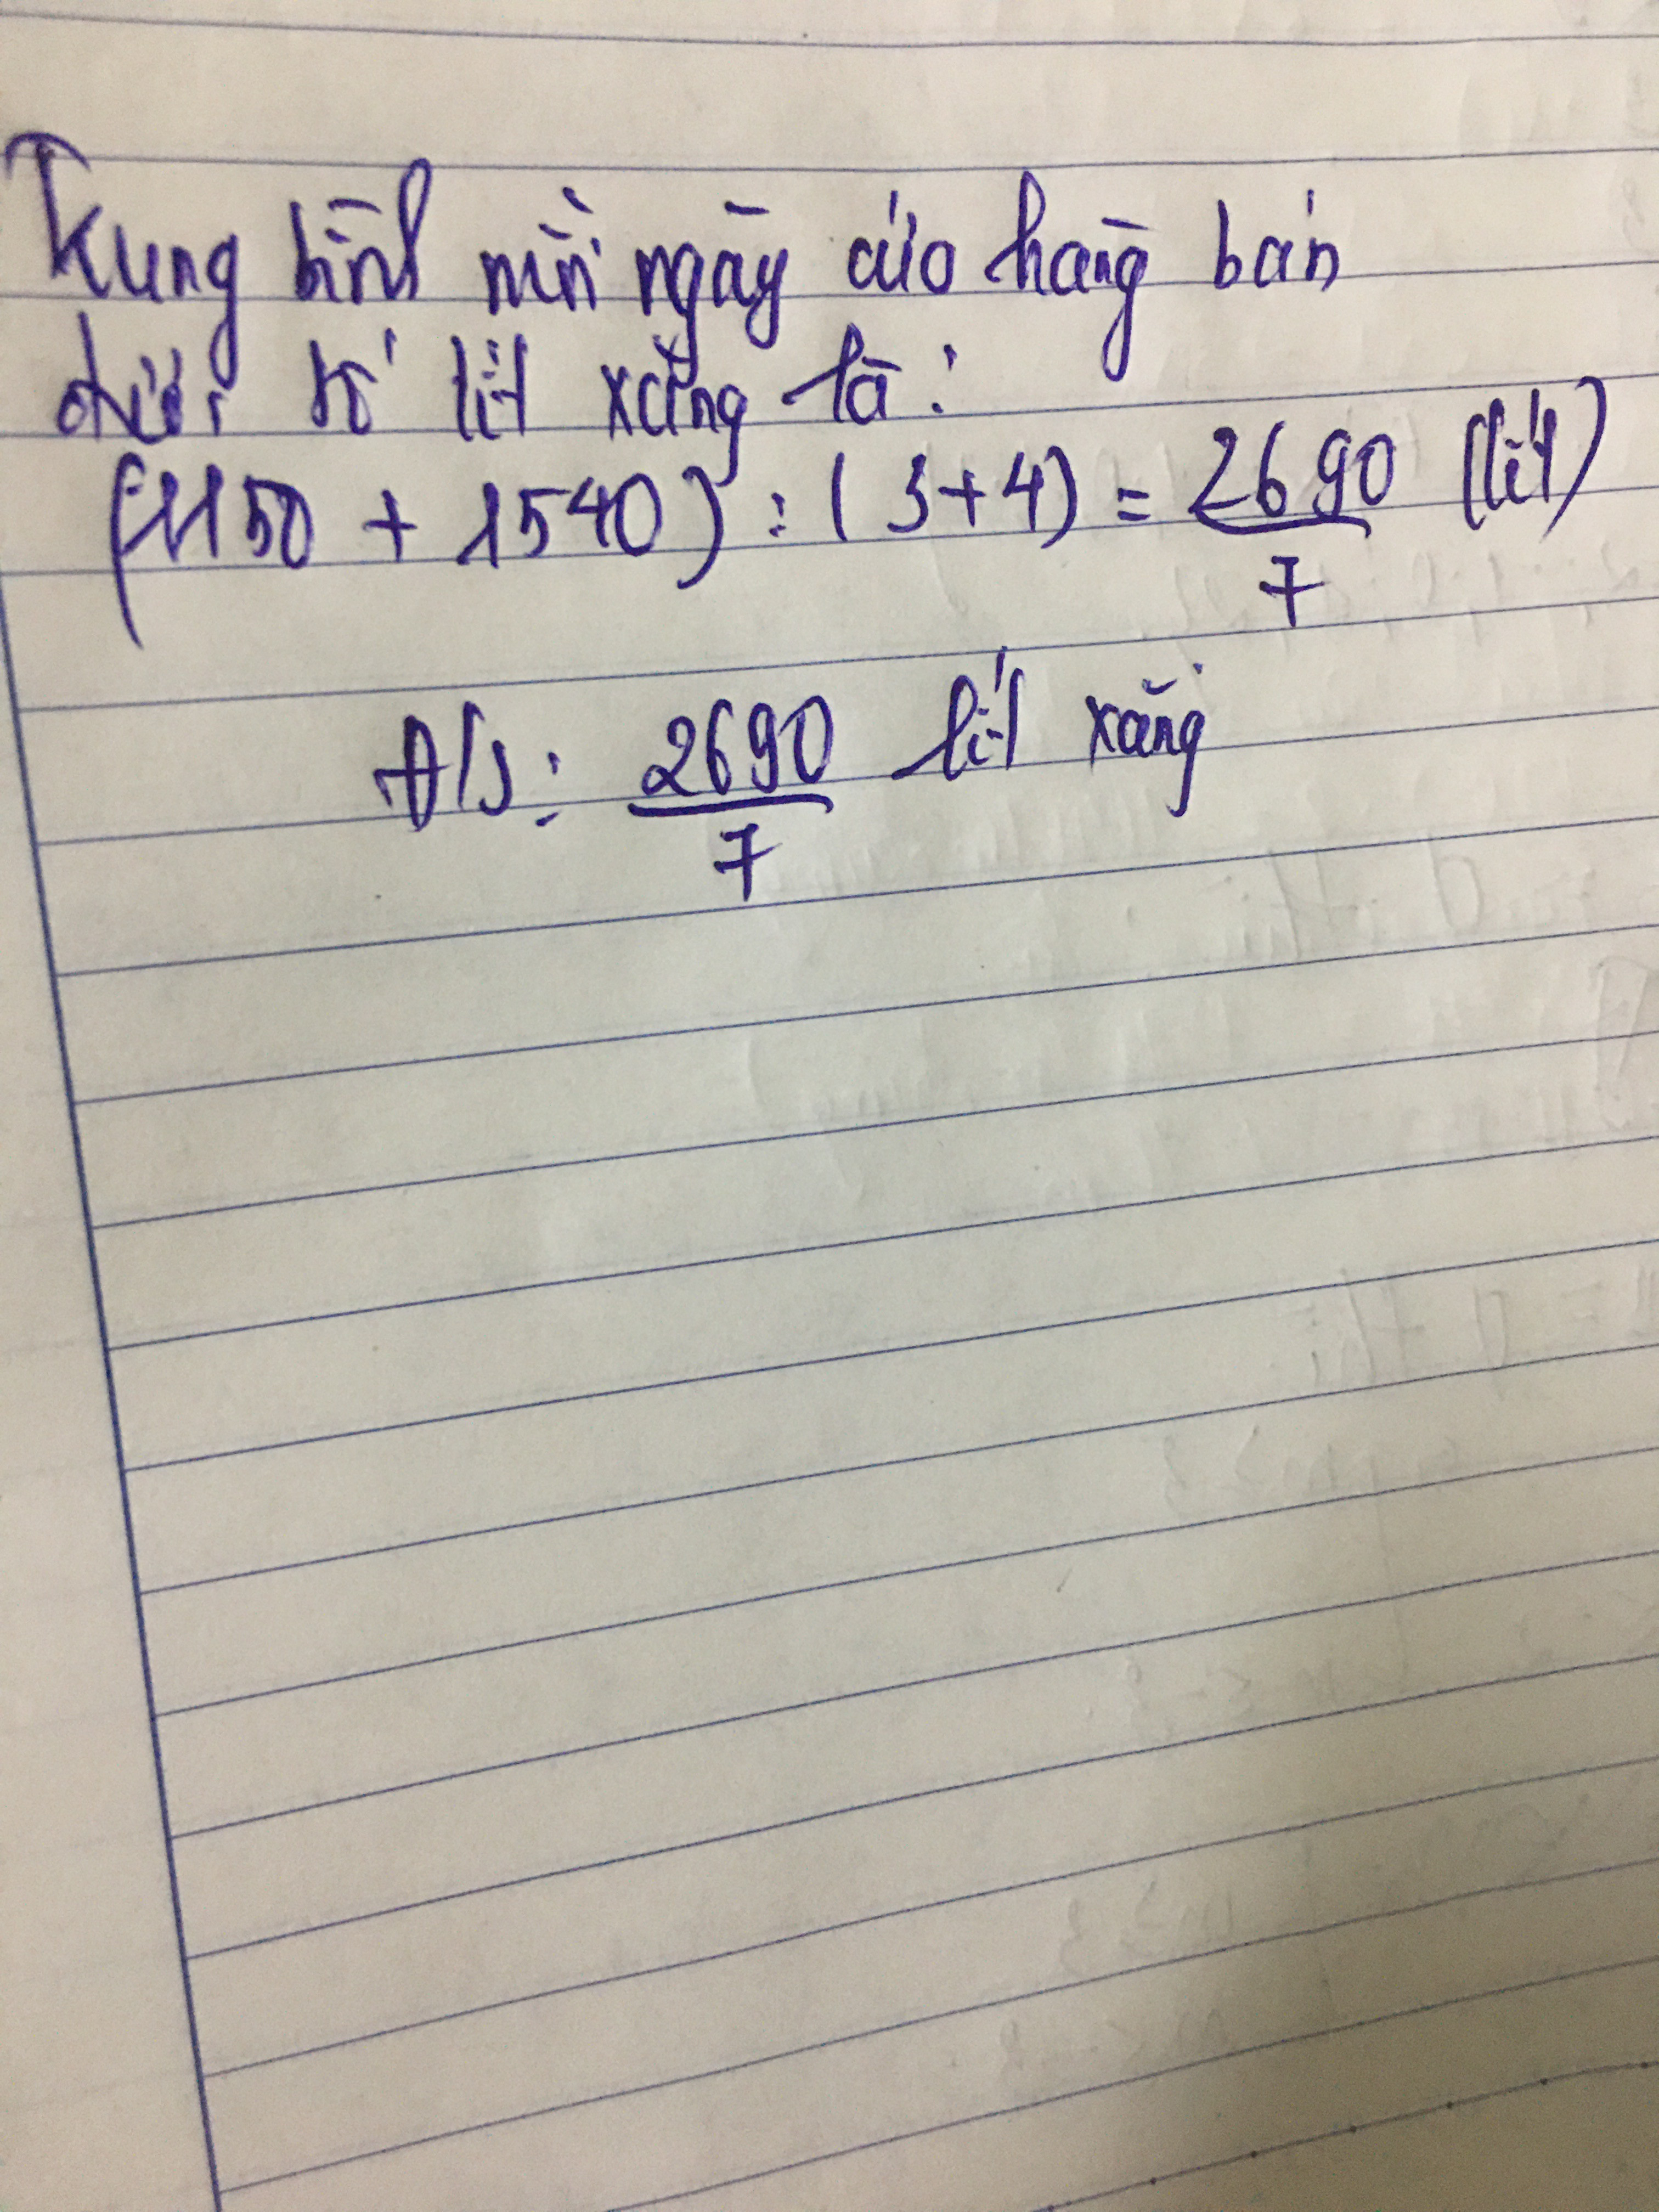 Trung bình mỗi ngày cửa hàng bán
được số lít xăng là:
(1150 + 1540) : (3+4) = 2690/7 (lít)
Đ/S: 2690/7 lít xăng